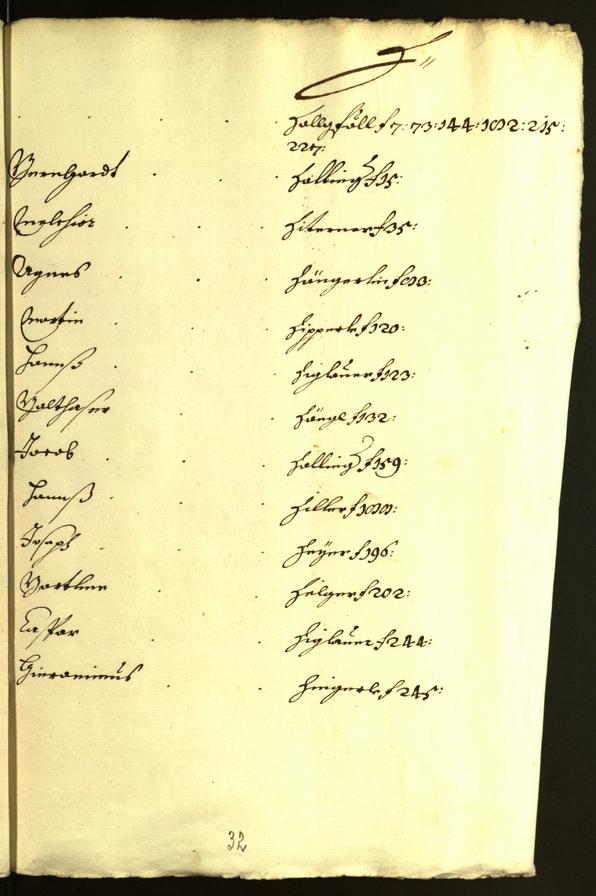 H
Hallg föll f 7: 73: 144: 182: 215:
227:
Bernhardt Hölling f 15:
Melchior Hiterner f 35:
Agnes Hängerlin f 83:
Martin Hipperle f 120:
Hannß Higlauer f 123:
Balthaser Hängl 132:
Jacob Hölling f 159:
Hannß Hiller f 188:
Joseph Heÿer f 196:
Bartlme Helger f 202:
Caspar Higlauer f 244:
Hieronimus Hingerle f 245:
32